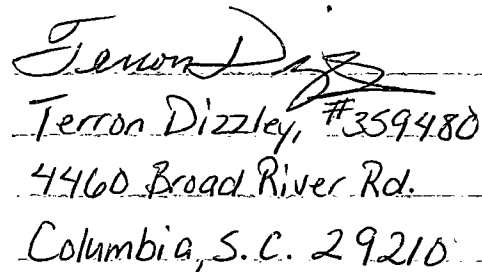 Terron Diz
Terron Dizzley, #359480
4460 Broad River Rd.
Columbia, S.C. 29210